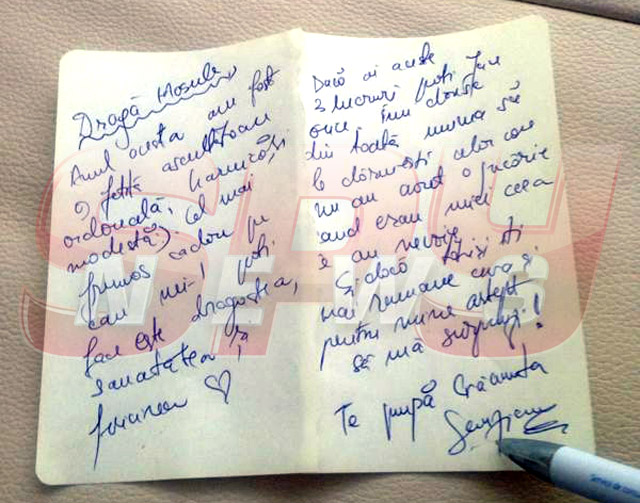 Dragă Mosule
Anul acesta am fost
o fetită ascultătoare
ordonată, harnică, si
modestă :). Cel mai
frumos cadou pe
care mi-l poti
face este dragostea,
sanatatea si
Dacă ai aceste
3 lucruri poti face
orice. Imi doresc
din toată inima să
le dăruiesti celor care
nu au avut o jucărie
cand erau mici ceea
ce au nevoie
Si dacă totusi iti
mai ramane ceva si
pentru mine astept
să mă surprinzi!
Te pupă Crăciunita
SPY
NEWS